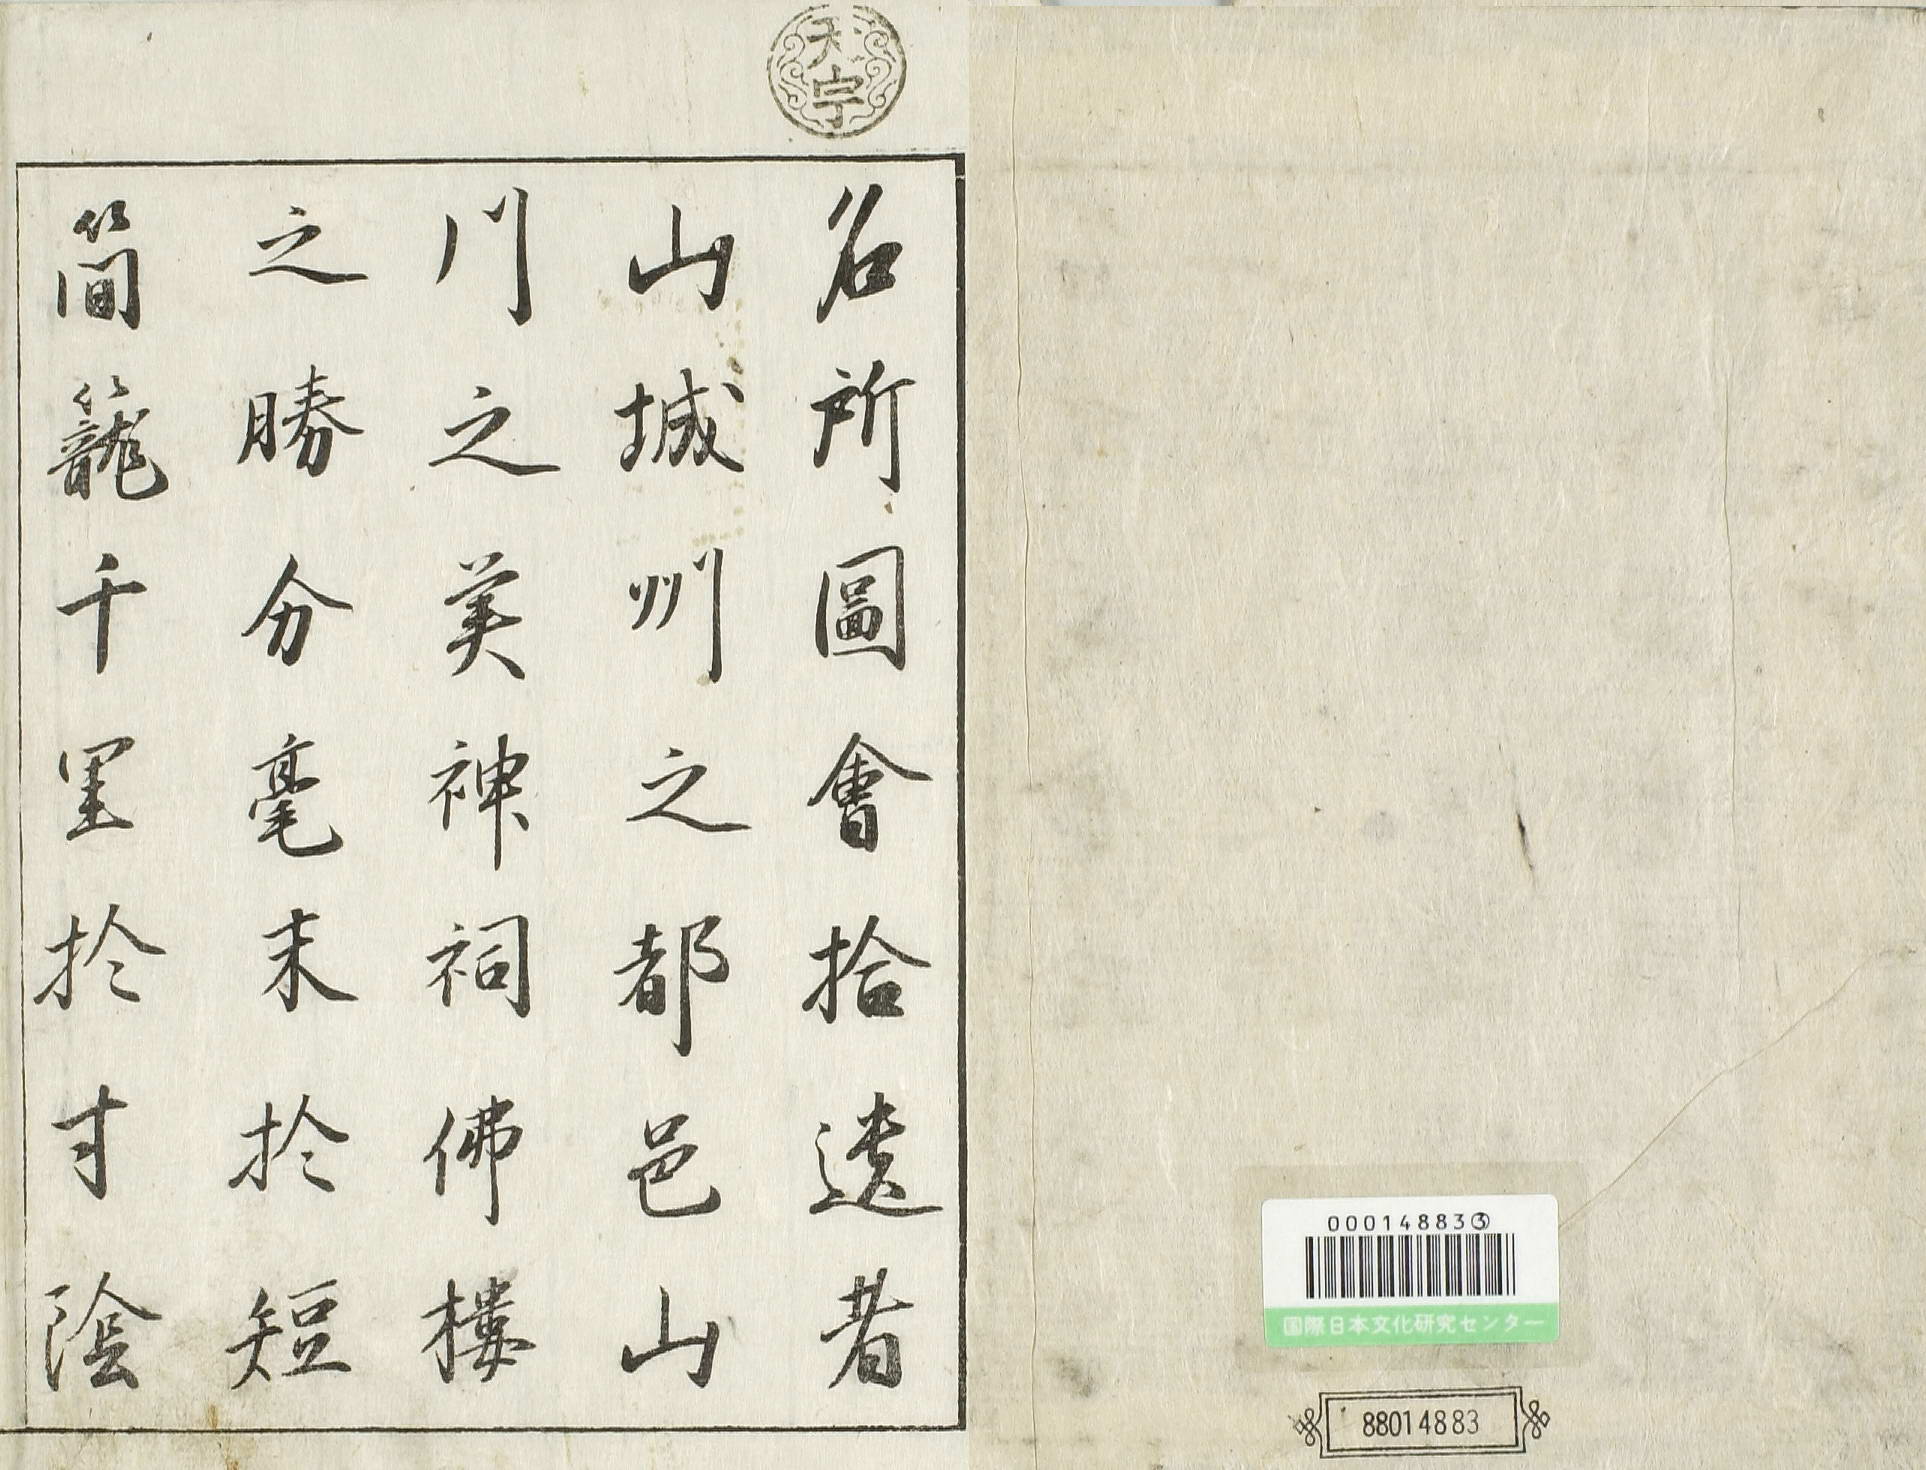 名所圖會拾遺者
山城州之都邑山
川之美神祠佛樓
之勝分毫末於短
簡籠千里於寸陰
000148833
国際日本文化研究センター
88014883